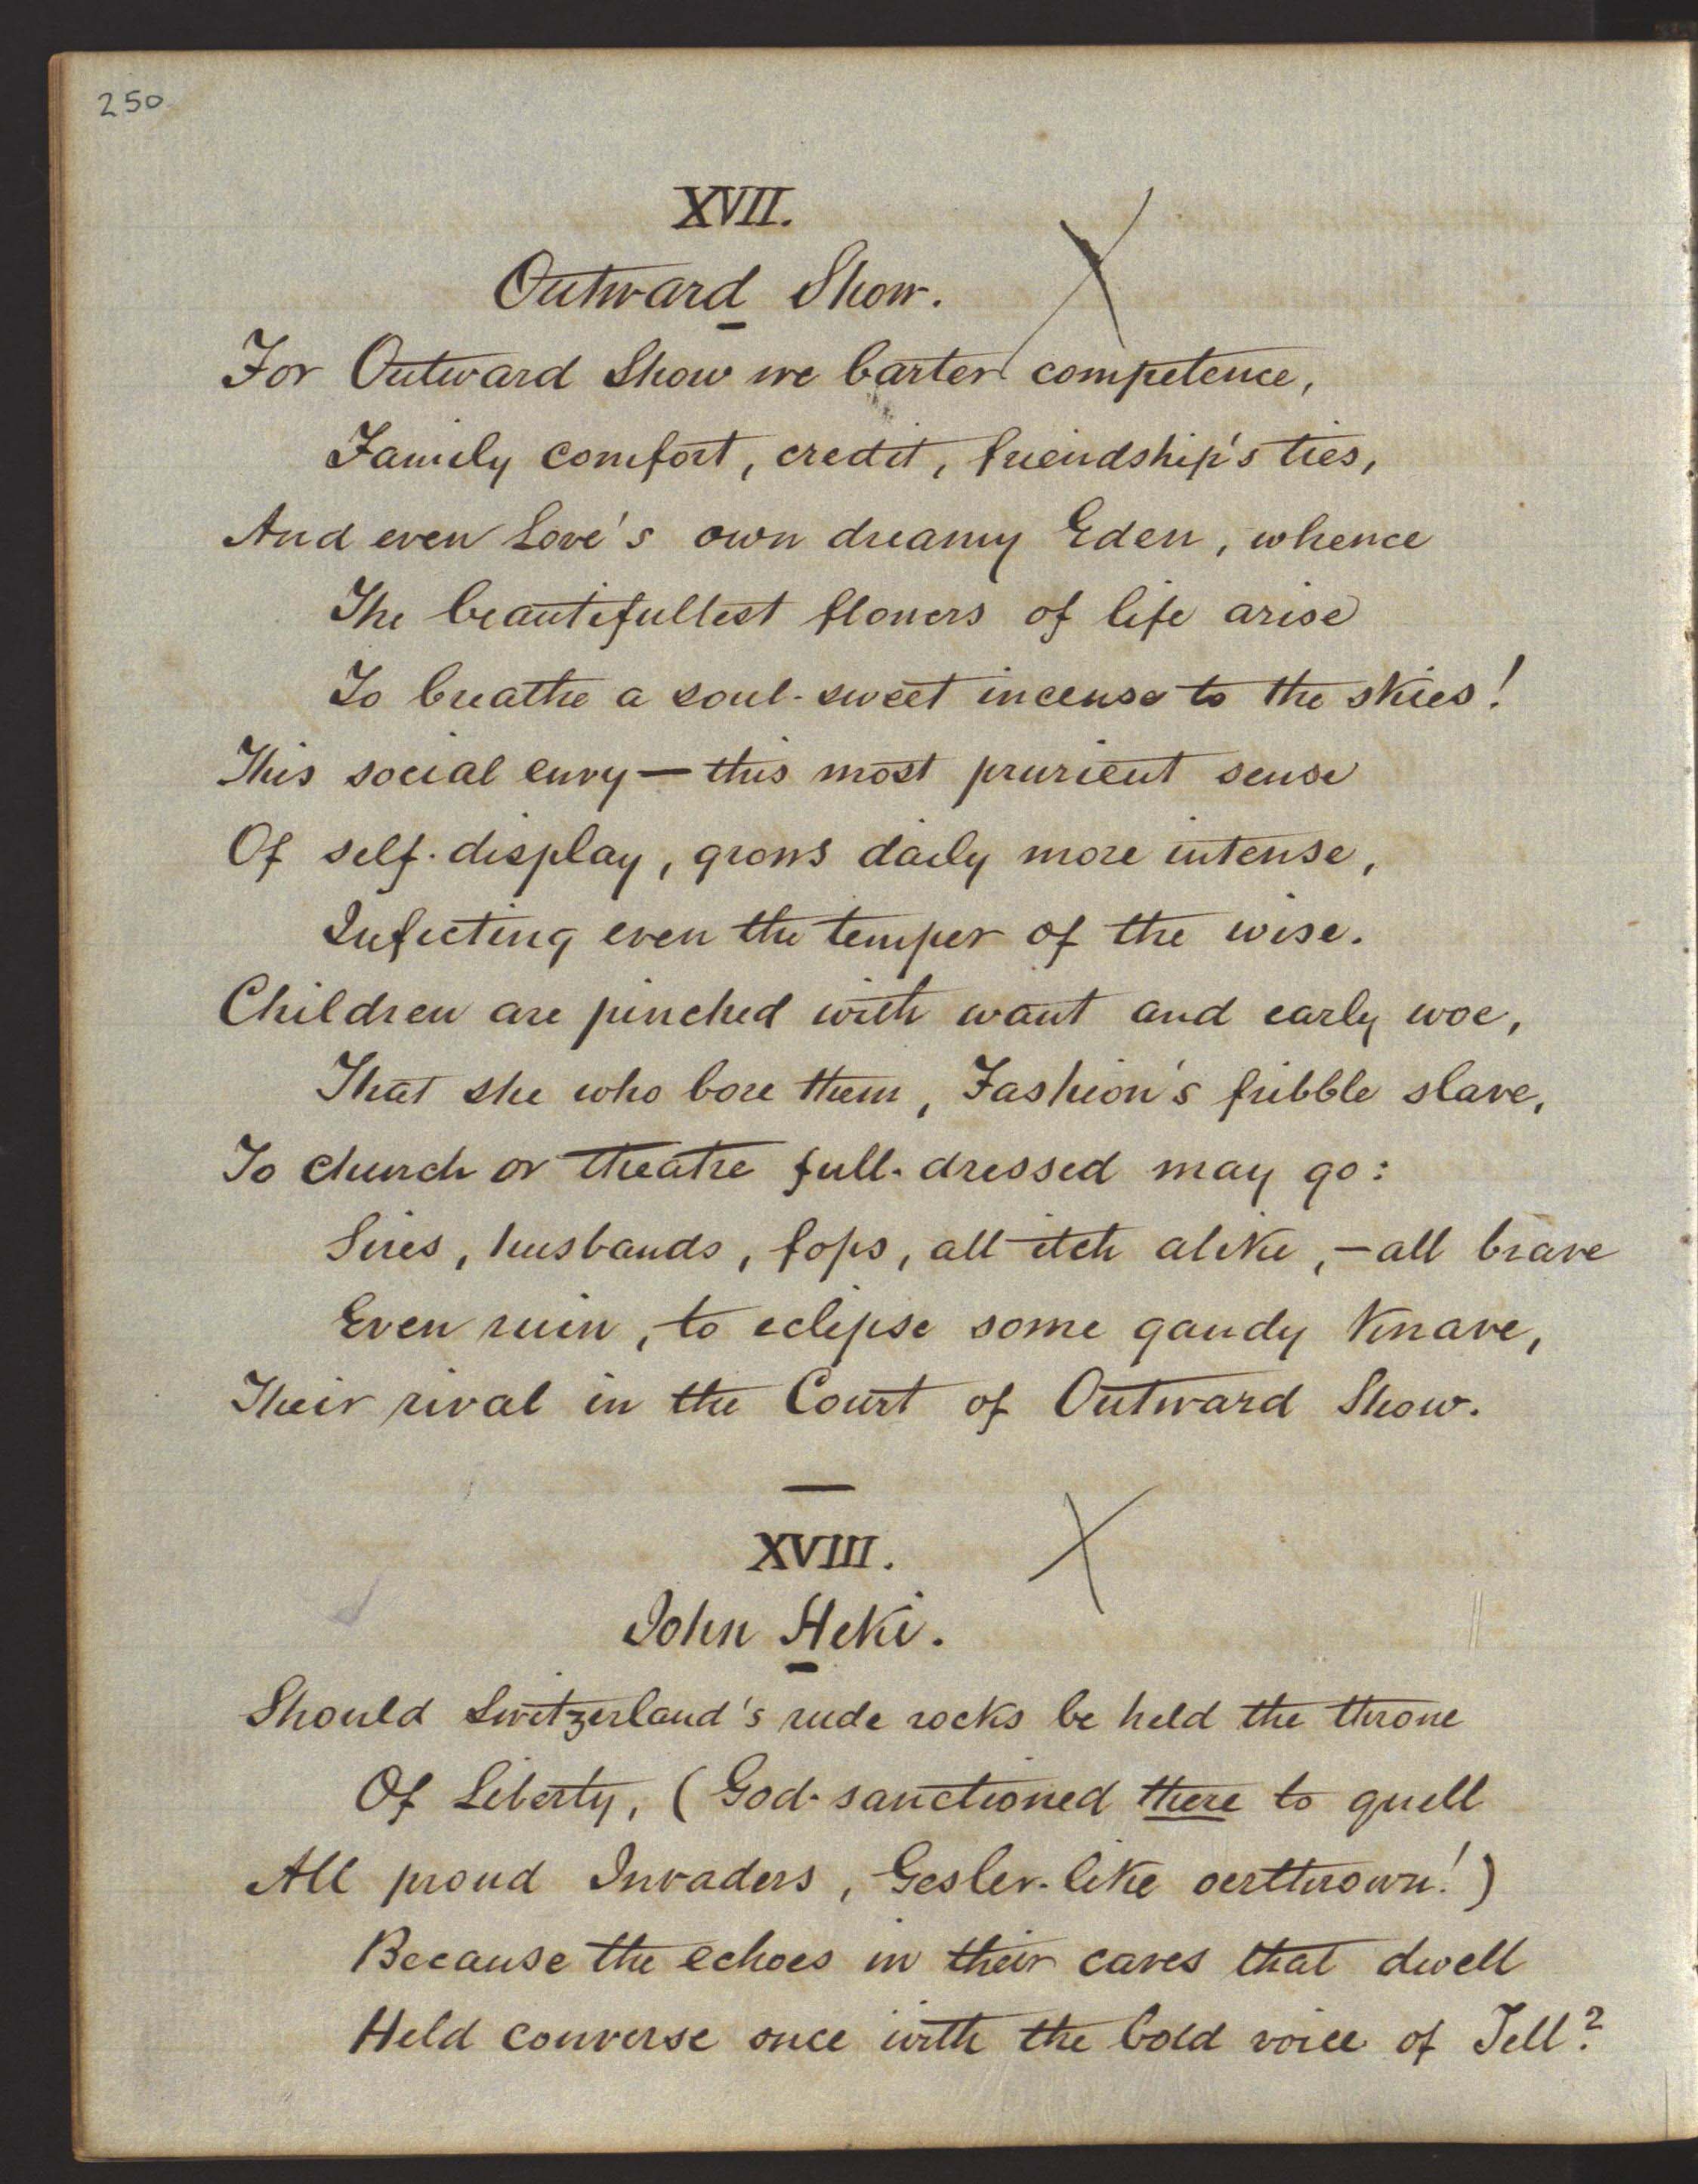 250
XVII.
Outward Show.
For Outward Show we barter competence,
Family comfort, credit, friendship's ties,
And even Love's own dreamy Eden, whence
The beautifullest flowers of life arise
To breathe a soul-sweet incense to the skies!
This social envy — this most prurient sense
Of self-display, grows daily more intense,
Infecting even the temper of the wise.
Children are pinched with want and early woe,
That she who bore them, Fashion's fribble slave,
To church or theatre full-dressed may go:
Sires, husbands, fops, all itch alike, — all brave
Even ruin, to eclipse some gaudy Knave,
Their rival in the Court of Outward Show.
XVIII.
John Heki.
Should Switzerland's rude rocks be held the throne
Of Liberty, (God-sanctioned there to quell
All proud Invaders, Gesler-like oerthrown!)
Because the echoes in their caves that dwell
Held converse once with the bold voice of Tell?